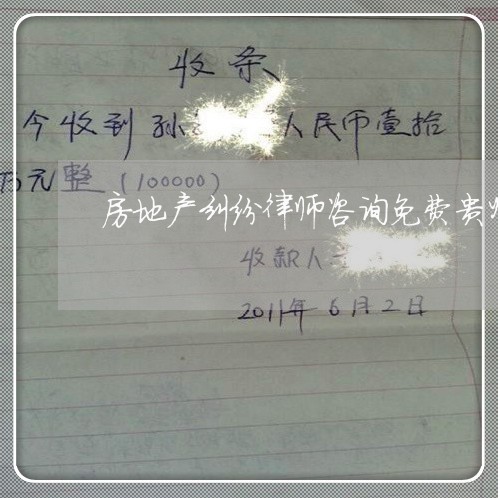 收条
今收到孙 人民币壹拾
万元整(100000)
房地产纠纷律师咨询免费贵
收款人
2011年6月2日